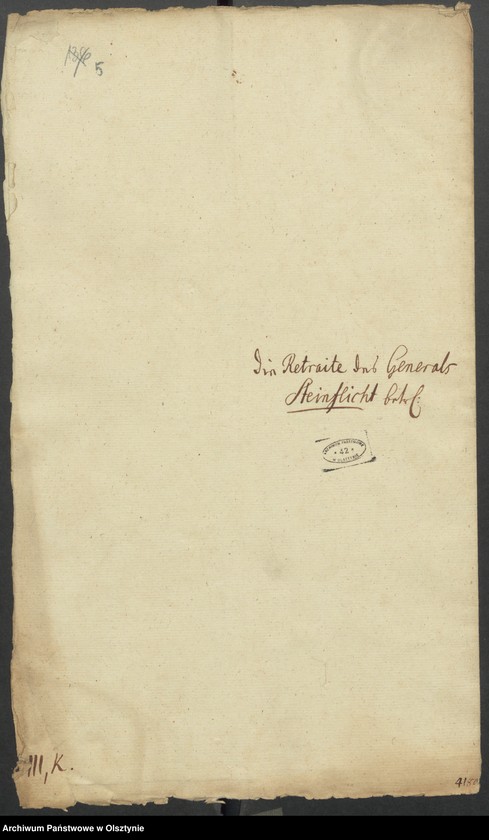 5
Die Retraite des Generals
Steinflicht betr:
ARCHIWUM PAŃSTWOWE
* 42 *
W OLSZTYNIE
III, K.
Archiwum Państwowe w Olsztynie